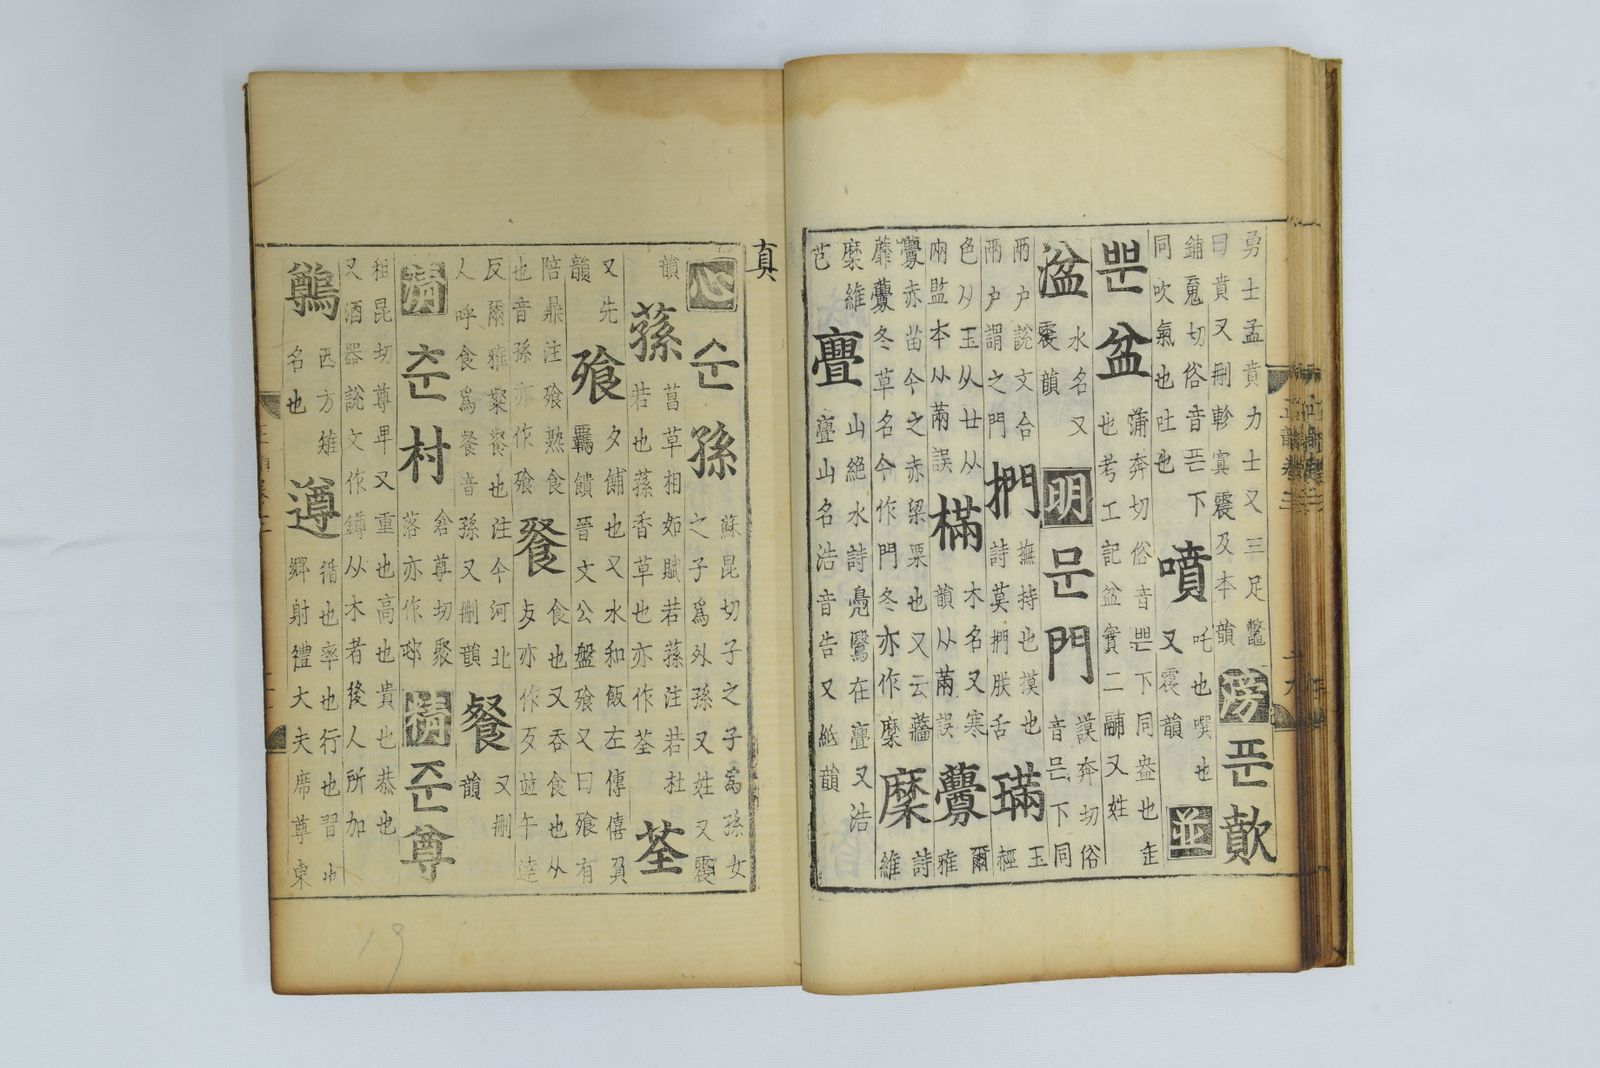 勇士孟賁力士又三足鼈
曰賁又刪軫寘震及本韻
滂 푼 歕
鋪䰟切俗音픈下
同吹氣也吐也
噴
吒也噀也
又震韻
並
뿐 盆
蒲奔切俗音쁜下同盎也
也考工記盆實二鬴又姓
湓
水名又
震韻
明 문 門
謨奔切俗
音믄下同
兩戶說文合
兩戶謂之門
捫
撫持也摸也
詩莫捫朕舌
璊
玉
經
色从玉从廿从
㒼監本从兩誤
樠
木名又寒
韻从㒼誤
虋
爾
雅
虋赤苗今之赤梁粟也又云蘠
蘼虋冬草名今作門冬亦作穈
穈
詩
維
穈維
芑
亹
山絶水詩鳧鷖在亹又浩
亹山名浩音告又紙韻
眞
心 순 孫
蘇昆切子之子爲孫女
之子爲外孫又姓又震
韻
蓀
菖草相如賦若蓀注若杜
若也蓀香草也亦作荃
荃
又先
韻
飧
夕餔也又水和飯左傳僖負
羈饋晉文公盤飧又曰飧有
陪鼎注飧熟食
也音孫亦作飱
餐
食也又吞食也从
歺亦作歹並午達
反爾雅粲餐也注今河北
人呼食爲餐音孫又刪韻
餐
又刪
韻
淸 춘 村
倉尊切聚
落亦作邨
精 준 尊
租昆切尊卑又重也高也貴也恭也
又酒器說文作罇从木者後人所加
鷷
西方雉
名也
遵
循也率也行也習也
鄉射禮大夫席尊東
19